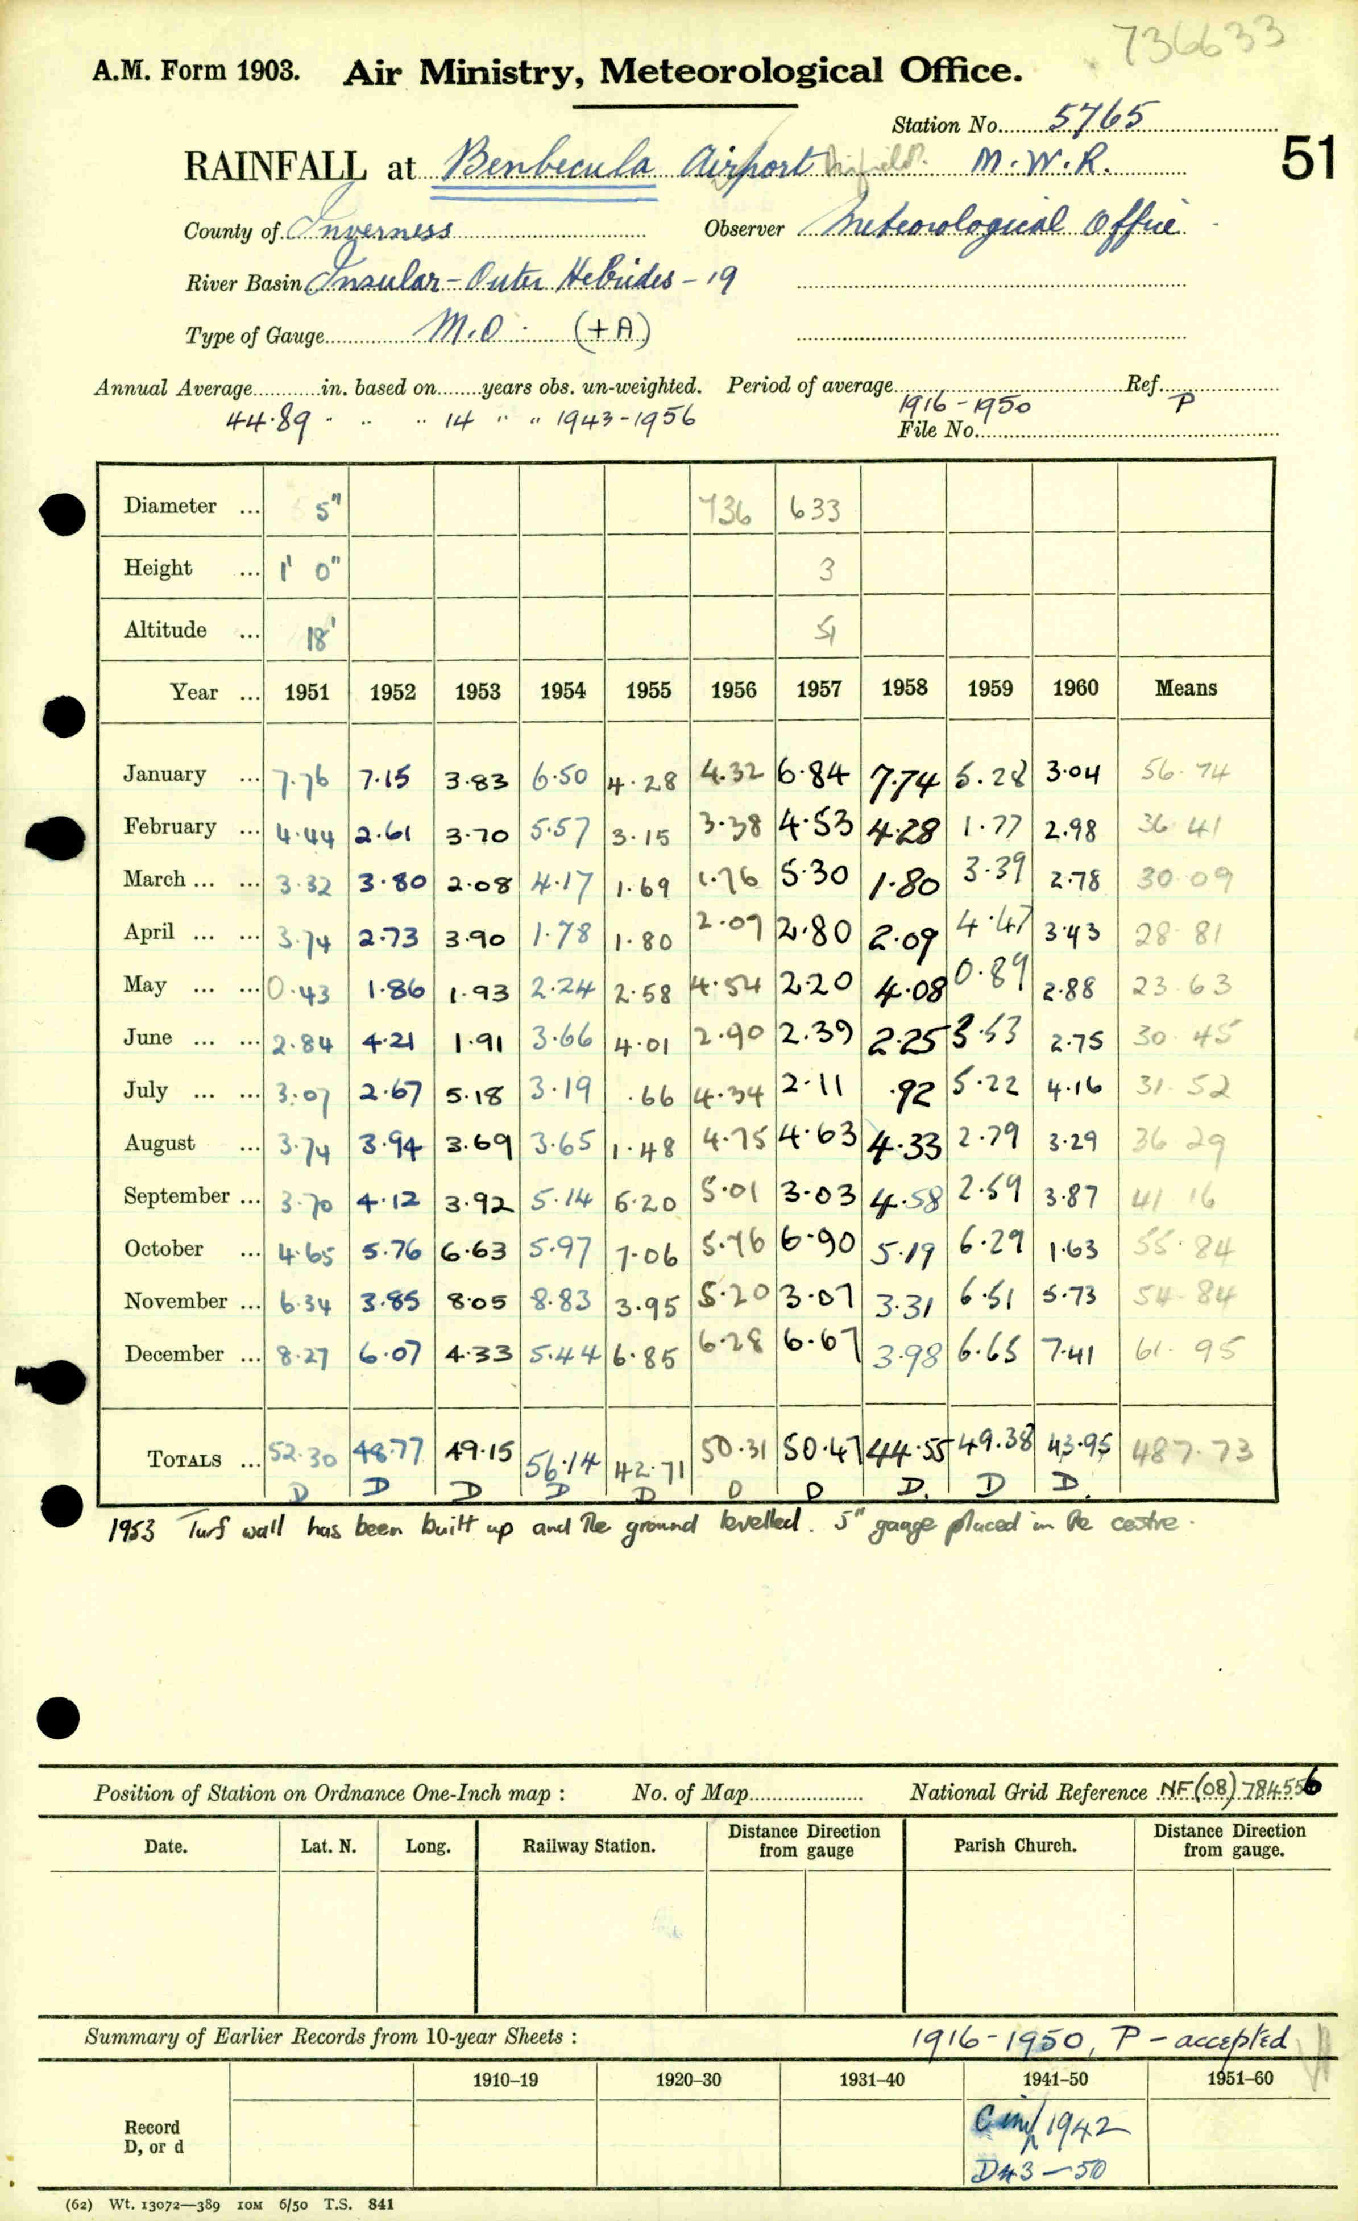 736633
A.M. Form 1903. Air Ministry, Meteorological Office.
Station No. 5765
RAINFALL at Benbecula Airport Airfield. M.W.R. 51
County of Inverness Observer Meteorological Office
River Basin Insular - Outer Hebrides - 19
Type of Gauge M.O. (+A)
Annual Average in. based on years obs. un-weighted. Period of average 1916-1950 Ref. P
44.89 " " " 14 " " 1943-1956 File No.
Diameter ... 5" 736 633
Height ... 1' 0" 3
Altitude ... 18' 51
Year ... 1951 1952 1953 1954 1955 1956 1957 1958 1959 1960 Means
January ... 7.76 7.15 3.83 6.50 4.28 4.32 6.84 7.74 5.28 3.04 56.74
February ... 4.44 2.61 3.70 5.57 3.15 3.38 4.53 4.28 1.77 2.98 36.41
March ... ... 3.32 3.80 2.08 4.17 1.69 1.76 5.30 1.80 3.39 2.78 30.09
April ... ... 3.74 2.73 3.90 1.78 1.80 2.07 2.80 2.09 4.47 3.43 28.81
May ... ... 0.43 1.86 1.93 2.24 2.58 4.54 2.20 4.08 0.89 2.88 23.63
June ... ... 2.84 4.21 1.91 3.66 4.01 2.90 2.39 2.25 3.53 2.75 30.45
July ... ... 3.07 2.67 5.18 3.19 .66 4.34 2.11 .92 5.22 4.16 31.52
August ... 3.74 3.94 3.69 3.65 1.48 4.75 4.63 4.33 2.79 3.29 36.29
September ... 3.70 4.12 3.92 5.14 5.20 5.01 3.03 4.58 2.59 3.87 41.16
October ... 4.65 5.76 6.63 5.97 7.06 5.76 6.90 5.19 6.29 1.63 55.84
November ... 6.34 3.85 8.05 8.83 3.95 5.20 3.07 3.31 6.51 5.73 54.84
December ... 8.27 6.07 4.33 5.44 6.85 6.28 6.67 3.98 6.65 7.41 61.95
TOTALS ... 52.30 48.77 49.15 56.14 42.71 50.31 50.47 44.55 49.38 43.95 487.73
D D D D D D D D. D D.
1953 Turf wall has been built up and the ground levelled. 5" gauge placed in the centre.
Position of Station on Ordnance One-Inch map : No. of Map National Grid Reference NF(08)784556
Date. Lat. N. Long. Railway Station. Distance Direction from gauge Parish Church. Distance Direction from gauge.
Summary of Earlier Records from 10-year Sheets : 1916-1950, P - accepted
1910–19 1920–30 1931–40 1941–50 1951–60
Record D, or d
1942
D43-50
(62) Wt. 13072—389 10M 6/50 T.S. 841